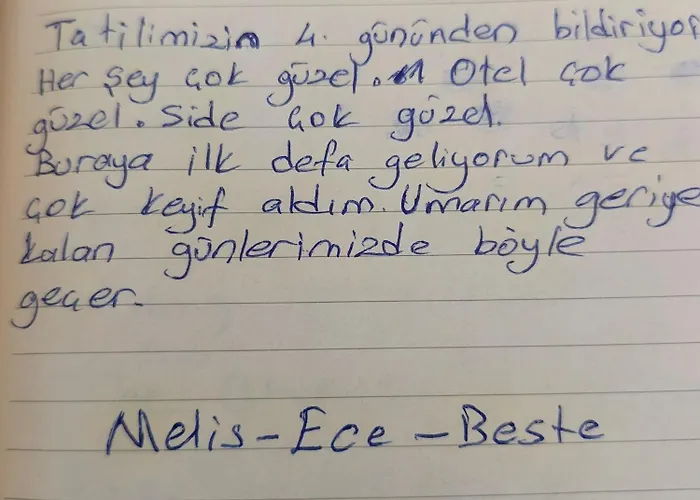 Tatilimizin 4. gününden bildiriyor
Her Şey çok güzel. Otel çok
güzel. Side çok güzel.
Buraya ilk defa geliyorum ve
çok keyif aldım. Umarım geriye
kalan günlerimizde böyle
geçer.
Melis-Ece-Beste